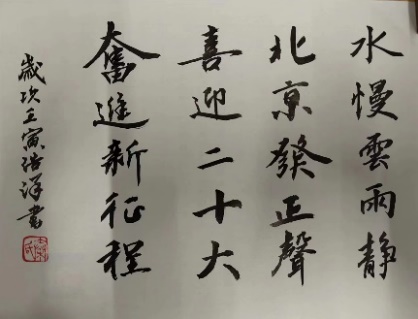 水慢雲雨静
北京發正聲
喜迎二十大
奮進新征程
歲次壬寅 書